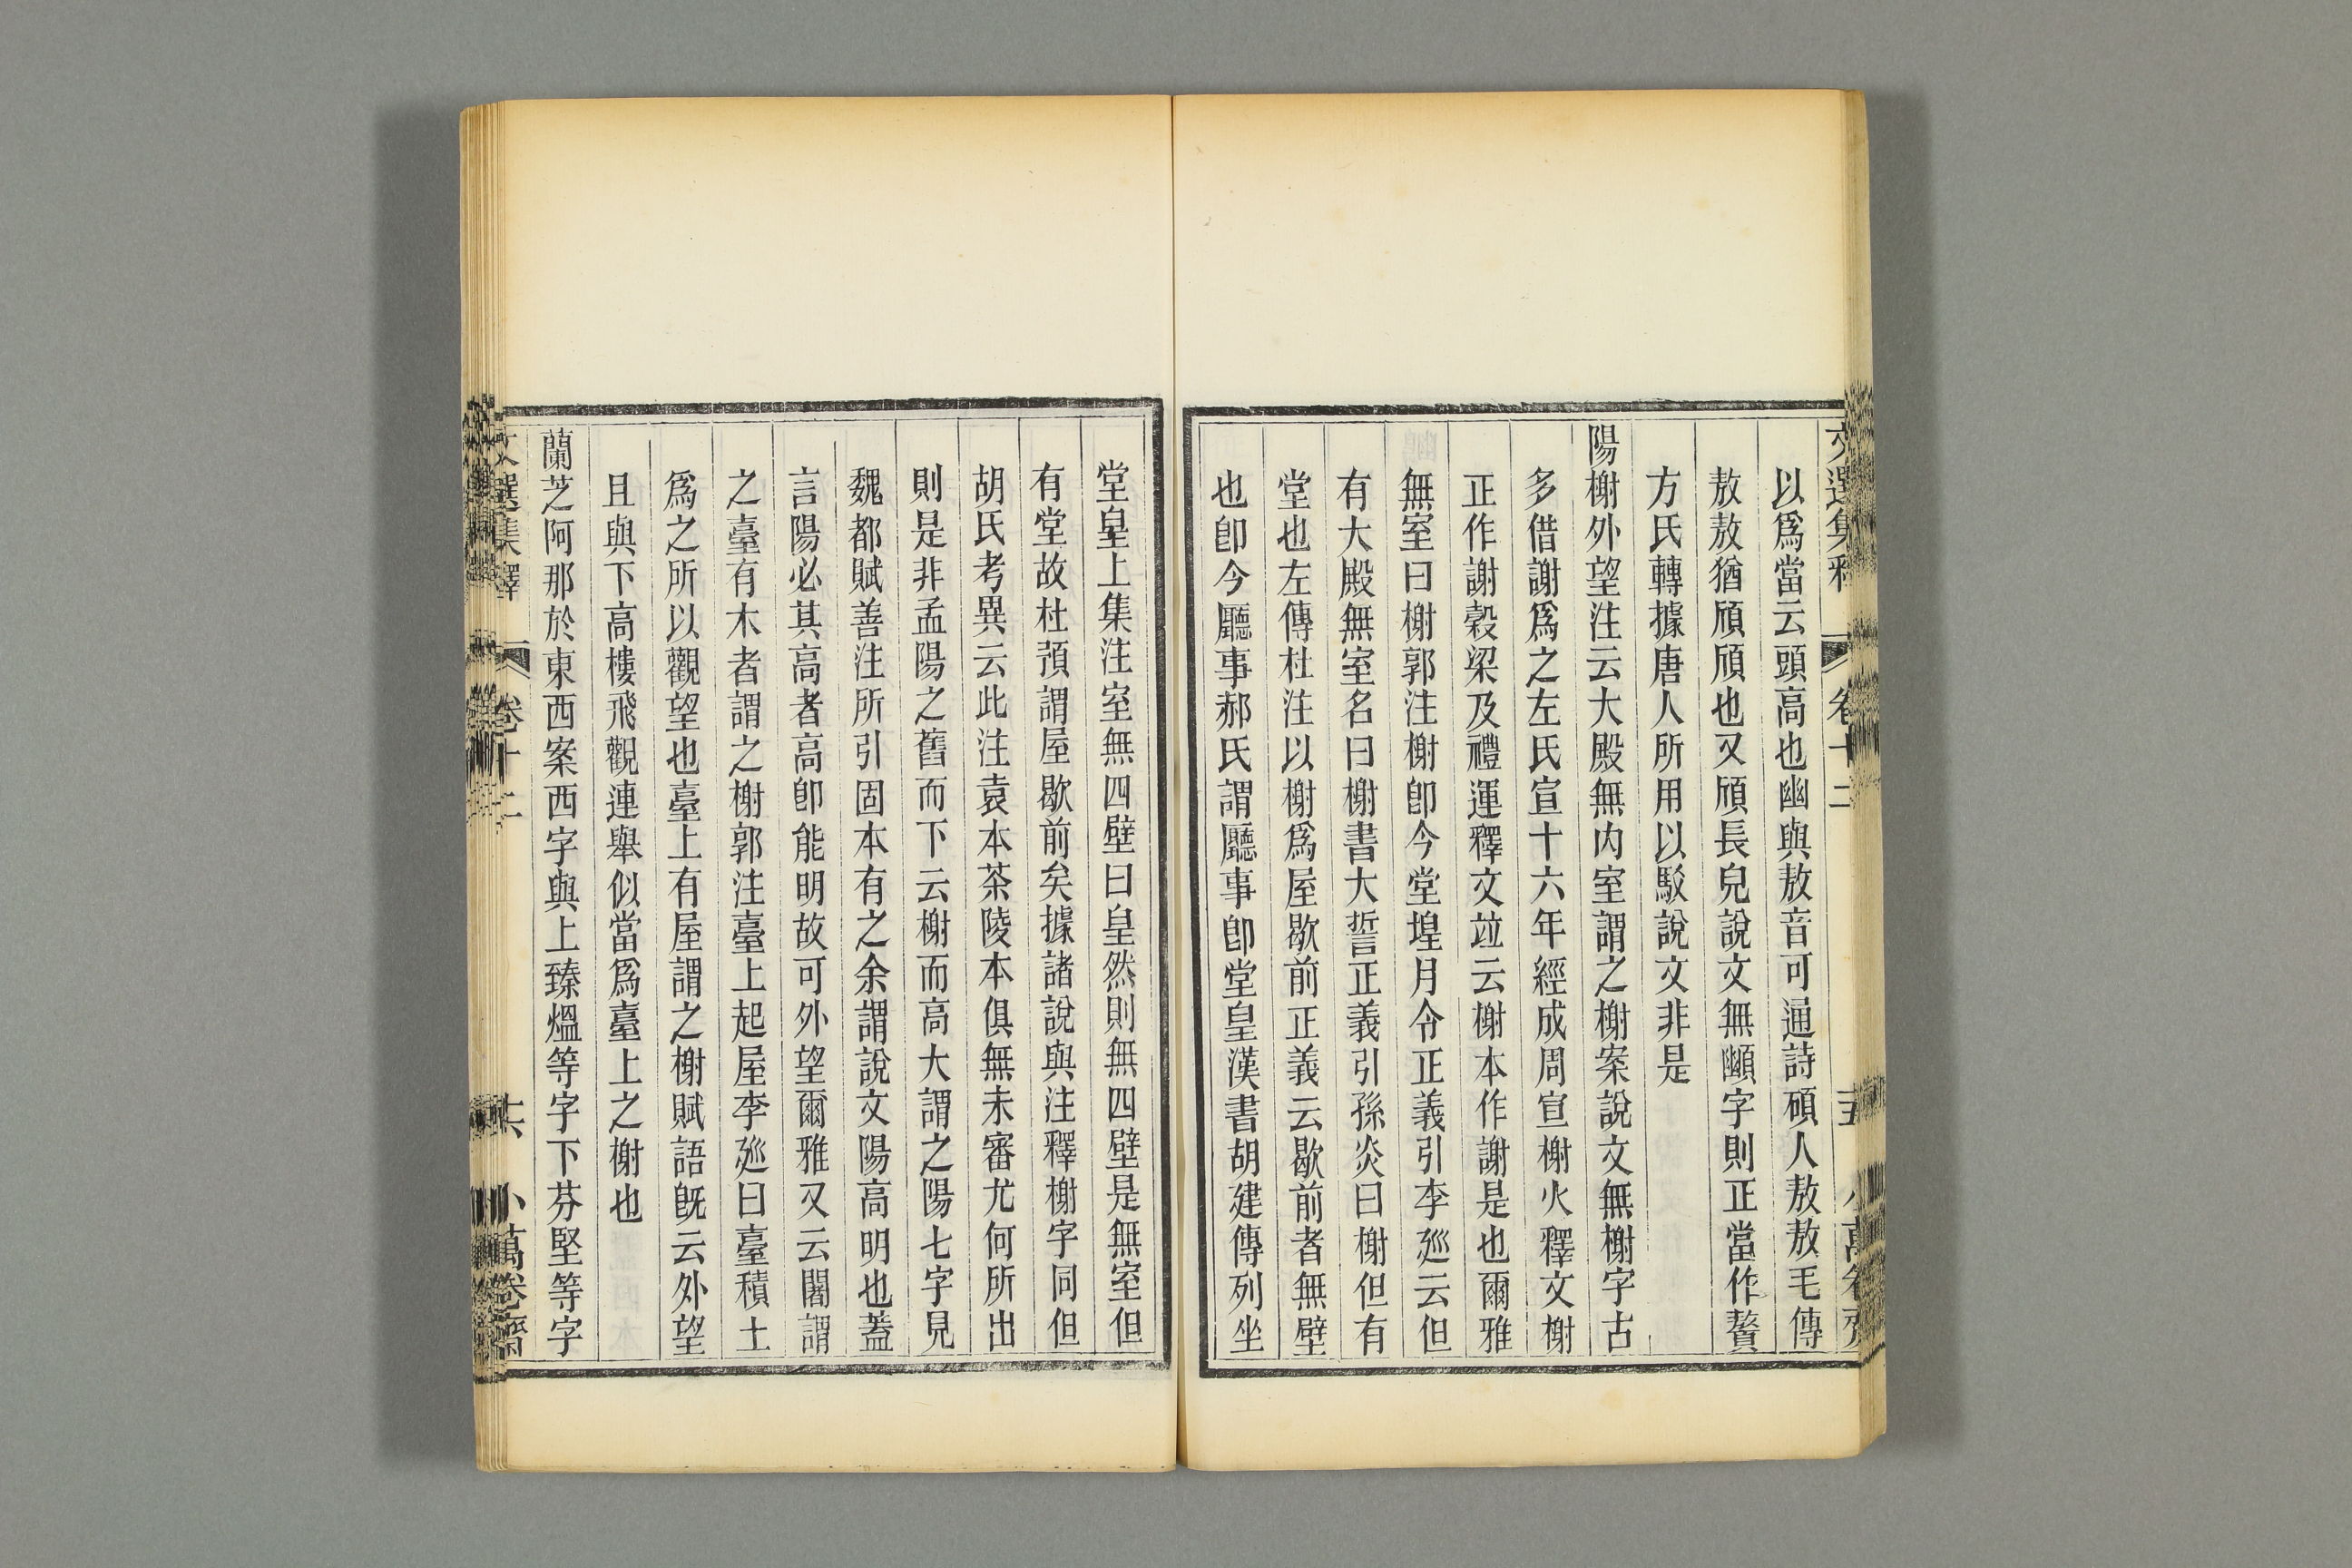 文選集釋 卷十二 十五 小萬卷齋
以爲當云頭高也𡺲與敖音可通詩碩人敖敖毛傳
敖敖猶頎頎也又頎長皃說文無顤字則正當作贅
方氏轉據唐人所用以駁說文非是
陽榭外望注云大殿無內室謂之榭案說文無榭字古
多借謝爲之左氏宣十六年經成周宣榭火釋文榭
正作謝穀梁及禮運釋文竝云榭本作謝是也爾雅
無室曰榭郭注榭卽今堂堭月令正義引李廵云但
有大殿無室名曰榭書大誓正義引孫炎曰榭但有
堂也左傳杜注以榭爲屋歇前正義云歇前者無壁
也卽今廳事郝氏謂廳事卽堂皇漢書胡建傳列坐
堂皇上集注室無四壁曰皇然則無四壁是無室但
有堂故杜預謂屋歇前矣據諸說與注釋榭字同但
胡氏考異云此注袁本茶陵本俱無未審尤何所出
則是非孟陽之舊而下云榭而高大謂之陽七字見
魏都賦善注所引固本有之余謂說文陽高明也蓋
言陽必其高者高卽能明故可外望爾雅又云闍謂
之臺有木者謂之榭郭注臺上起屋李廵曰臺積土
爲之所以觀望也臺上有屋謂之榭賦語旣云外望
且與下高樓飛觀連舉似當爲臺上之榭也
蘭芝阿那於東西案西字與上臻熅等字下芬堅等字
文選集釋 卷十二 十六 小萬卷齋